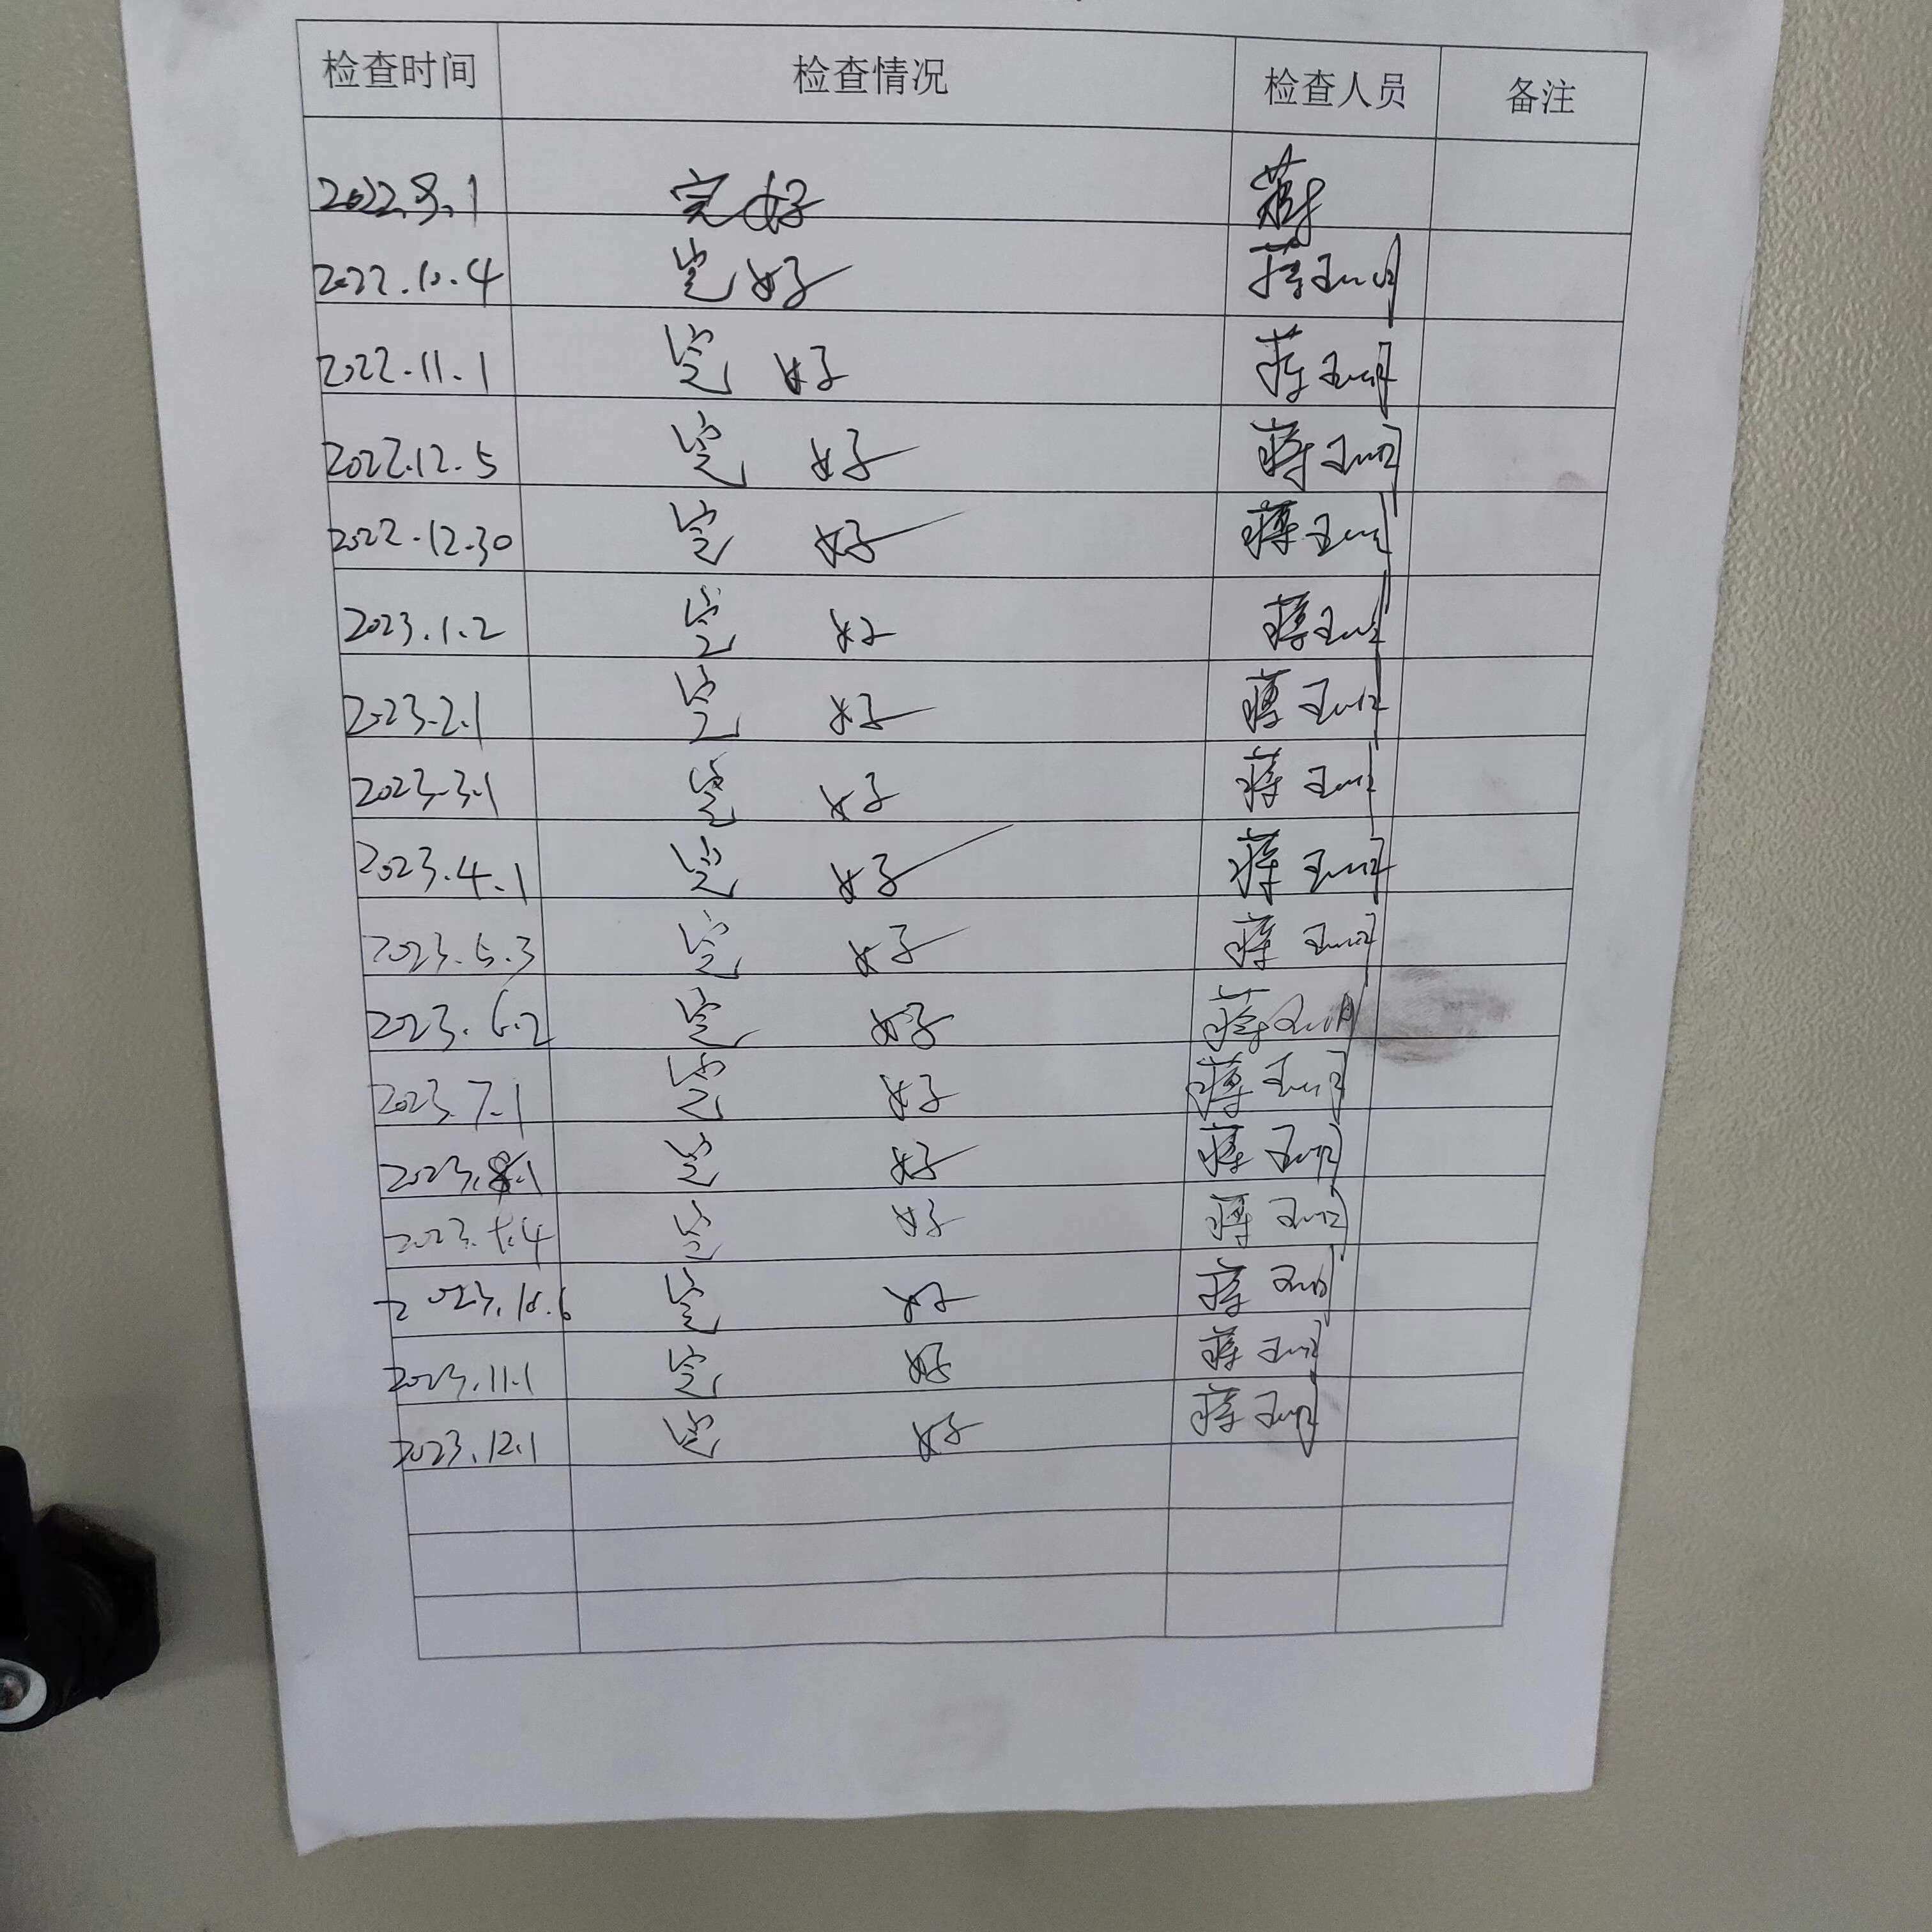 检查时间 检查情况 检查人员 备注
2022.9.1 完好 蒋
2022.10.4 完好 蒋
2022.11.1 完好 蒋
2022.12.5 完好 蒋
2022.12.30 完好 蒋
2023.1.2 完好 蒋
2023.2.1 完好 蒋
2023.3.1 完好 蒋
2023.4.1 完好 蒋
2023.5.3 完好 蒋
2023.6.2 完好 蒋
2023.7.1 完好 蒋
2023.8.1 完好 蒋
2023. .4 完好 蒋
2023.10.6 完好 蒋
2023.11.1 完好 蒋
2023.12.1 完好 蒋